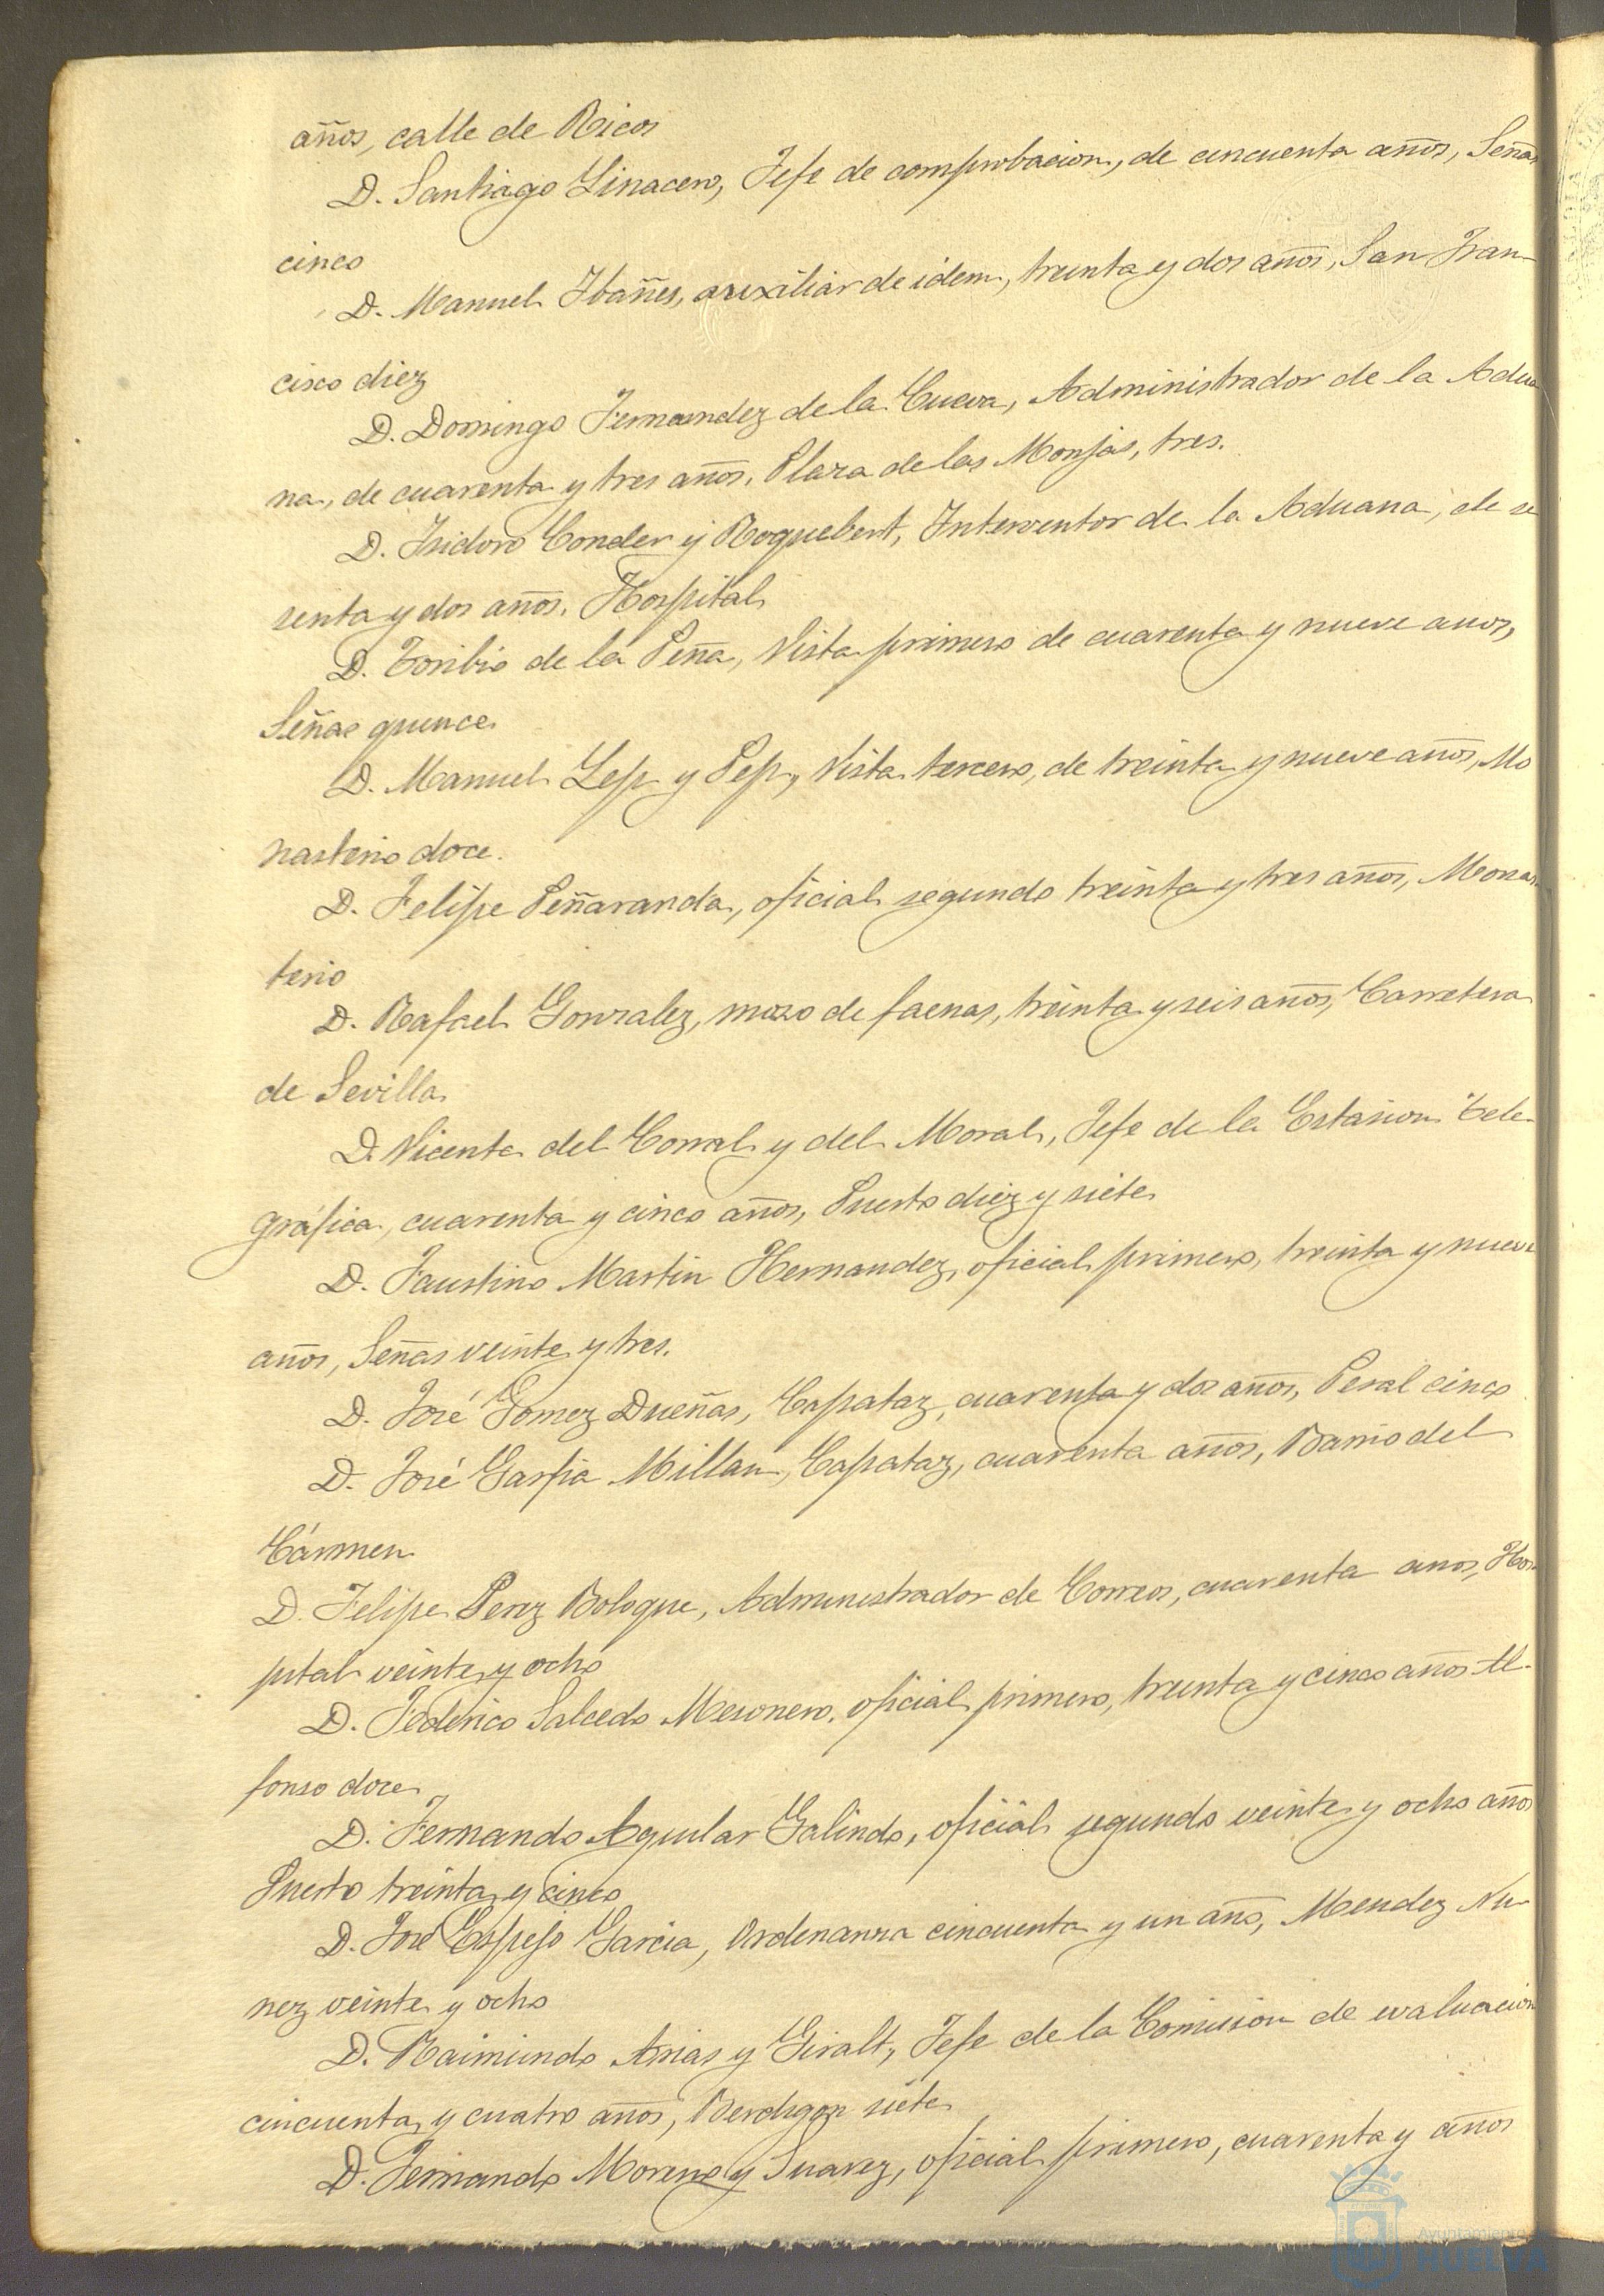 años, calle de Ricos
D. Santiago Linacero, Jefe de comprobacion, de cincuenta años, Señas
cinco
D. Manuel Ibañes, auxiliar de idem, treinta y dos años, San Fran-
cisco diez
D. Domingo Fernandez de la Cueva, Administrador de la Adua
na, de cuarenta y tres años, Plaza de las Monjas, tres.
D. Isidoro Conder y Roquebert, Interventor de la Aduana, de se
senta y dos años, Hospital
D. Toribio de la Peña, Vista primero de cuarenta y nueve años,
Señas quince
D. Manuel y Vista tercero, de treinta y nueve años, Mo
nasterio doce.
D. Felipe Peñaranda, oficial segundo treinta y tres años, Monas
terio
D. Rafael Gonzalez, mozo de faenas, treinta y seis años, Carretera
de Sevilla
D. Vicente del Corral y del Moral, Jefe de la Estacion Tele-
gráfica, cuarenta y cinco años, Puerto diez y siete
D. Faustino Martin Hernandez, oficial primero, treinta y nueve
años, Señas veinte y tres.
D. José Gomez Dueñas, Capataz, cuarenta y dos años, Peral cinco
D. José Garpia Millan, Capataz, cuarenta años, Barrio del
Cármen
D. Felipe Perez Bologue, Administrador de Correos, cuarenta años, Hos
pital veinte y ocho
D. Federico Salcedo Mesonero, oficial primero, treinta y cinco años Al-
fonso doce
D. Fernando Aguilar Galindo, oficial segundo veinte y ocho años
Puerto treinta y cinco
D. José Espejo Garcia, Ordenanza cincuenta y un año, Mendez Nu-
nez veinte y ocho
D. Raimundo Arias y Giralt, Jefe de la Comision de evaluacion
cincuenta y cuatro años, Berdigon siete
D. Fernando Moreno y Suarez, oficial primero, cuarenta y años
Ayuntamiento
HUELVA